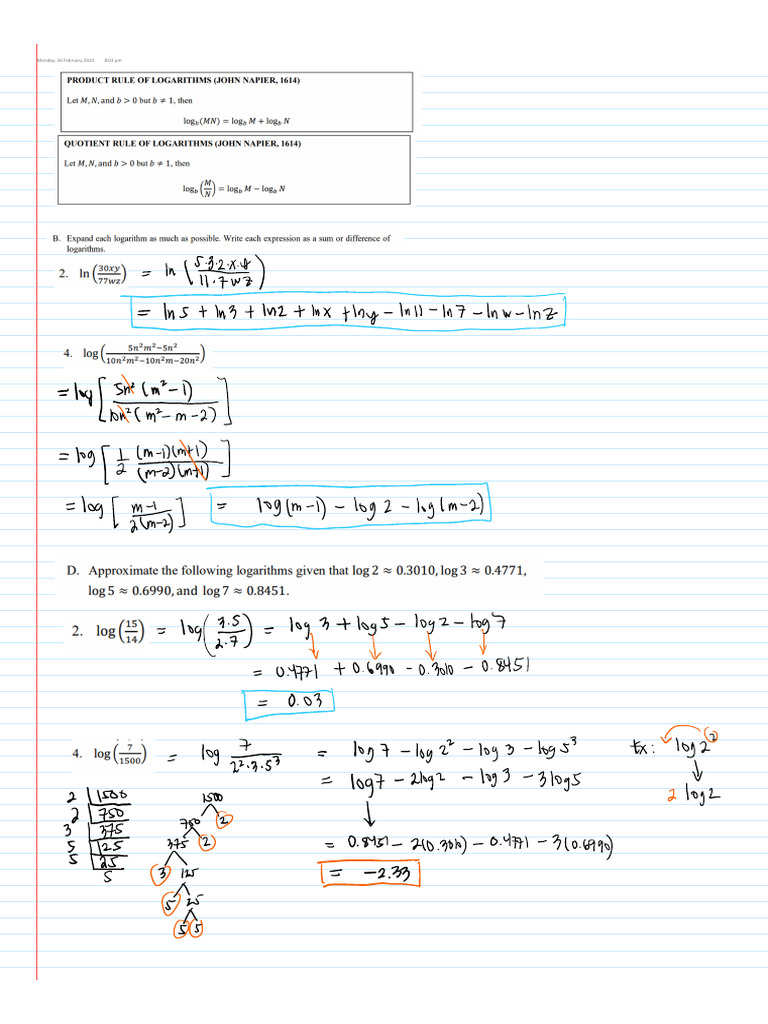 Monday, 26 February 2024 8:01 pm
PRODUCT RULE OF LOGARITHMS (JOHN NAPIER, 1614)
Let M, N, and b > 0 but b ≠ 1, then
log_b(MN) = log_b M + log_b N
QUOTIENT RULE OF LOGARITHMS (JOHN NAPIER, 1614)
Let M, N, and b > 0 but b ≠ 1, then
log_b (M/N) = log_b M − log_b N
B. Expand each logarithm as much as possible. Write each expression as a sum or difference of
logarithms.
2. ln (30xy/77wz) = ln (5·3·2·x·y / 11·7wz)
= ln5 + ln3 + ln2 + lnx + lny − ln11 − ln7 − lnw − lnz
4. log (5n²m²−5n² / 10n²m²−10n²m−20n²)
= log [5n²(m²−1) / 10n²(m²−m−2)]
= log [1/2 (m−1)(m+1) / (m−2)(m+1)]
= log [m−1 / 2(m−2)] = log(m−1) − log2 − log(m−2)
D. Approximate the following logarithms given that log 2 ≈ 0.3010, log 3 ≈ 0.4771,
log 5 ≈ 0.6990, and log 7 ≈ 0.8451.
2. log (15/14) = log (3·5 / 2·7) = log 3 + log5 − log2 − log7
= 0.4771 + 0.6990 − 0.3010 − 0.8451
= 0.03
4. log (7/1500) = log 7 / 2²·3·5³ = log7 − log2² − log3 − log5³ Ex: log2²
= log7 − 2log2 − log3 − 3log5 2 log2
2 1500 1500
2 750 750 2
3 375 375 2
5 125 3 125
5 25 5 25
5 5 5
= 0.8451 − 2(0.3010) − 0.4771 − 3(0.6990)
= −2.33